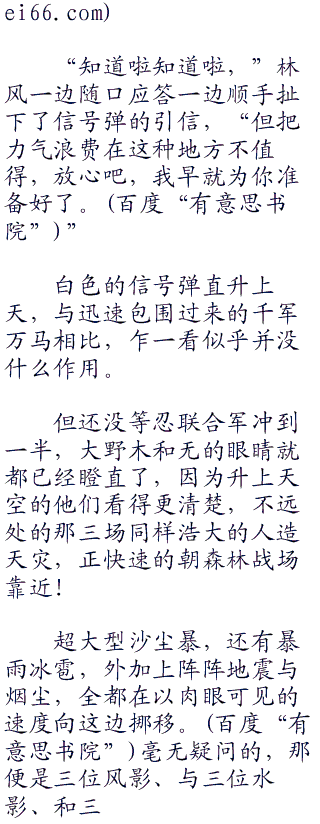 ei66.com)
“知道啦知道啦，”林
风一边随口应答一边顺手扯
下了信号弹的引信，“但把
力气浪费在这种地方不值
得，放心吧，我早就为你准
备好了。(百度“有意思书
院”)”
白色的信号弹直升上
天，与迅速包围过来的千军
万马相比，乍一看似乎并没
什么作用。
但还没等忍联合军冲到
一半，大野木和无的眼睛就
都已经瞪直了，因为升上天
空的他们看得更清楚，不远
处的那三场同样浩大的人造
天灾，正快速的朝森林战场
靠近！
超大型沙尘暴，还有暴
雨冰雹，外加上阵阵地震与
烟尘，全都在以肉眼可见的
速度向这边挪移。(百度“有
意思书院”)毫无疑问的，那
便是三位风影、与三位水
影、和三